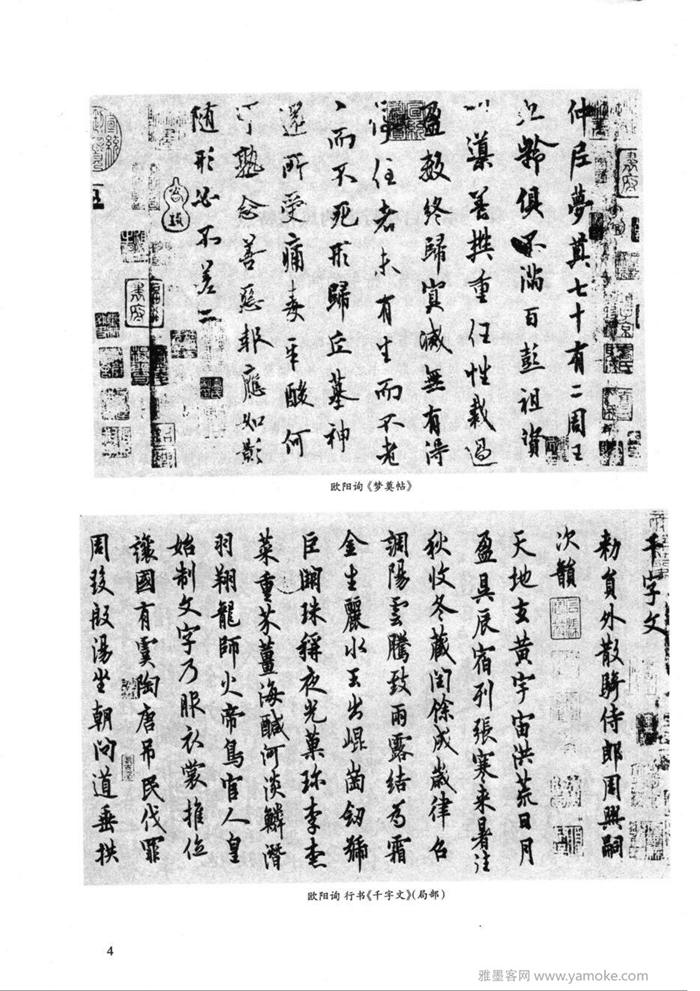 仲尼夢奠七十有二周王
九齡俱不滿百彭祖資
以導養樊重任性裁過
盈數終歸冥滅無有得
停住者未有生而不老
、而不死形歸丘墓神
還所受痛毒辛酸何
可熟念善惡報應如影
随形必不差二
欧阳询《梦奠帖》
千字文
勑員外散騎侍郎周興嗣
次韻
天地玄黄宇宙洪荒日月
盈昃辰宿列張寒来暑往
秋收冬藏閏餘成歲律召
調陽雲騰致雨露結為霜
金生麗水玉出崐崗劒號
巨闕珠稱夜光菓珎李柰
菜重芥薑海鹹河淡鱗潛
羽翔龍師火帝鳥官人皇
始制文字乃服衣裳推位
讓國有虞陶唐吊民伐罪
周發殷湯坐朝問道垂拱
欧阳询 行书《千字文》(局部)
4
雅墨客网 www.yamoke.com